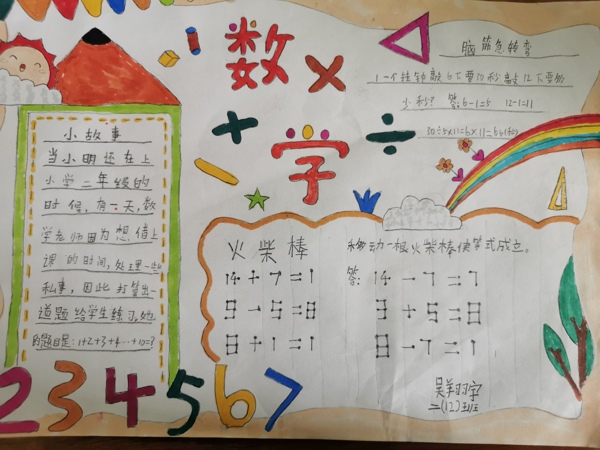 数
字
小故事
当小明还在上
小学二年级的
时候，有一天，数
学老师因为想借上
课的时间，处理一些
私事，因此打算出一
道题给学生练习，她
的题目是：1+2+3+4……+10=?
脑筋急转弯
1一个挂钟敲6下要30秒敲12下要
少秒? 答：6-1=5 12-1=11
30÷5×11=6×11=66(秒)
火柴棒
14+7=1
9-5=8
8+1=1
移动一根火柴棒使等式成立。
答：14-7=7
3+5=8
8-7=1
二(12)班
234567